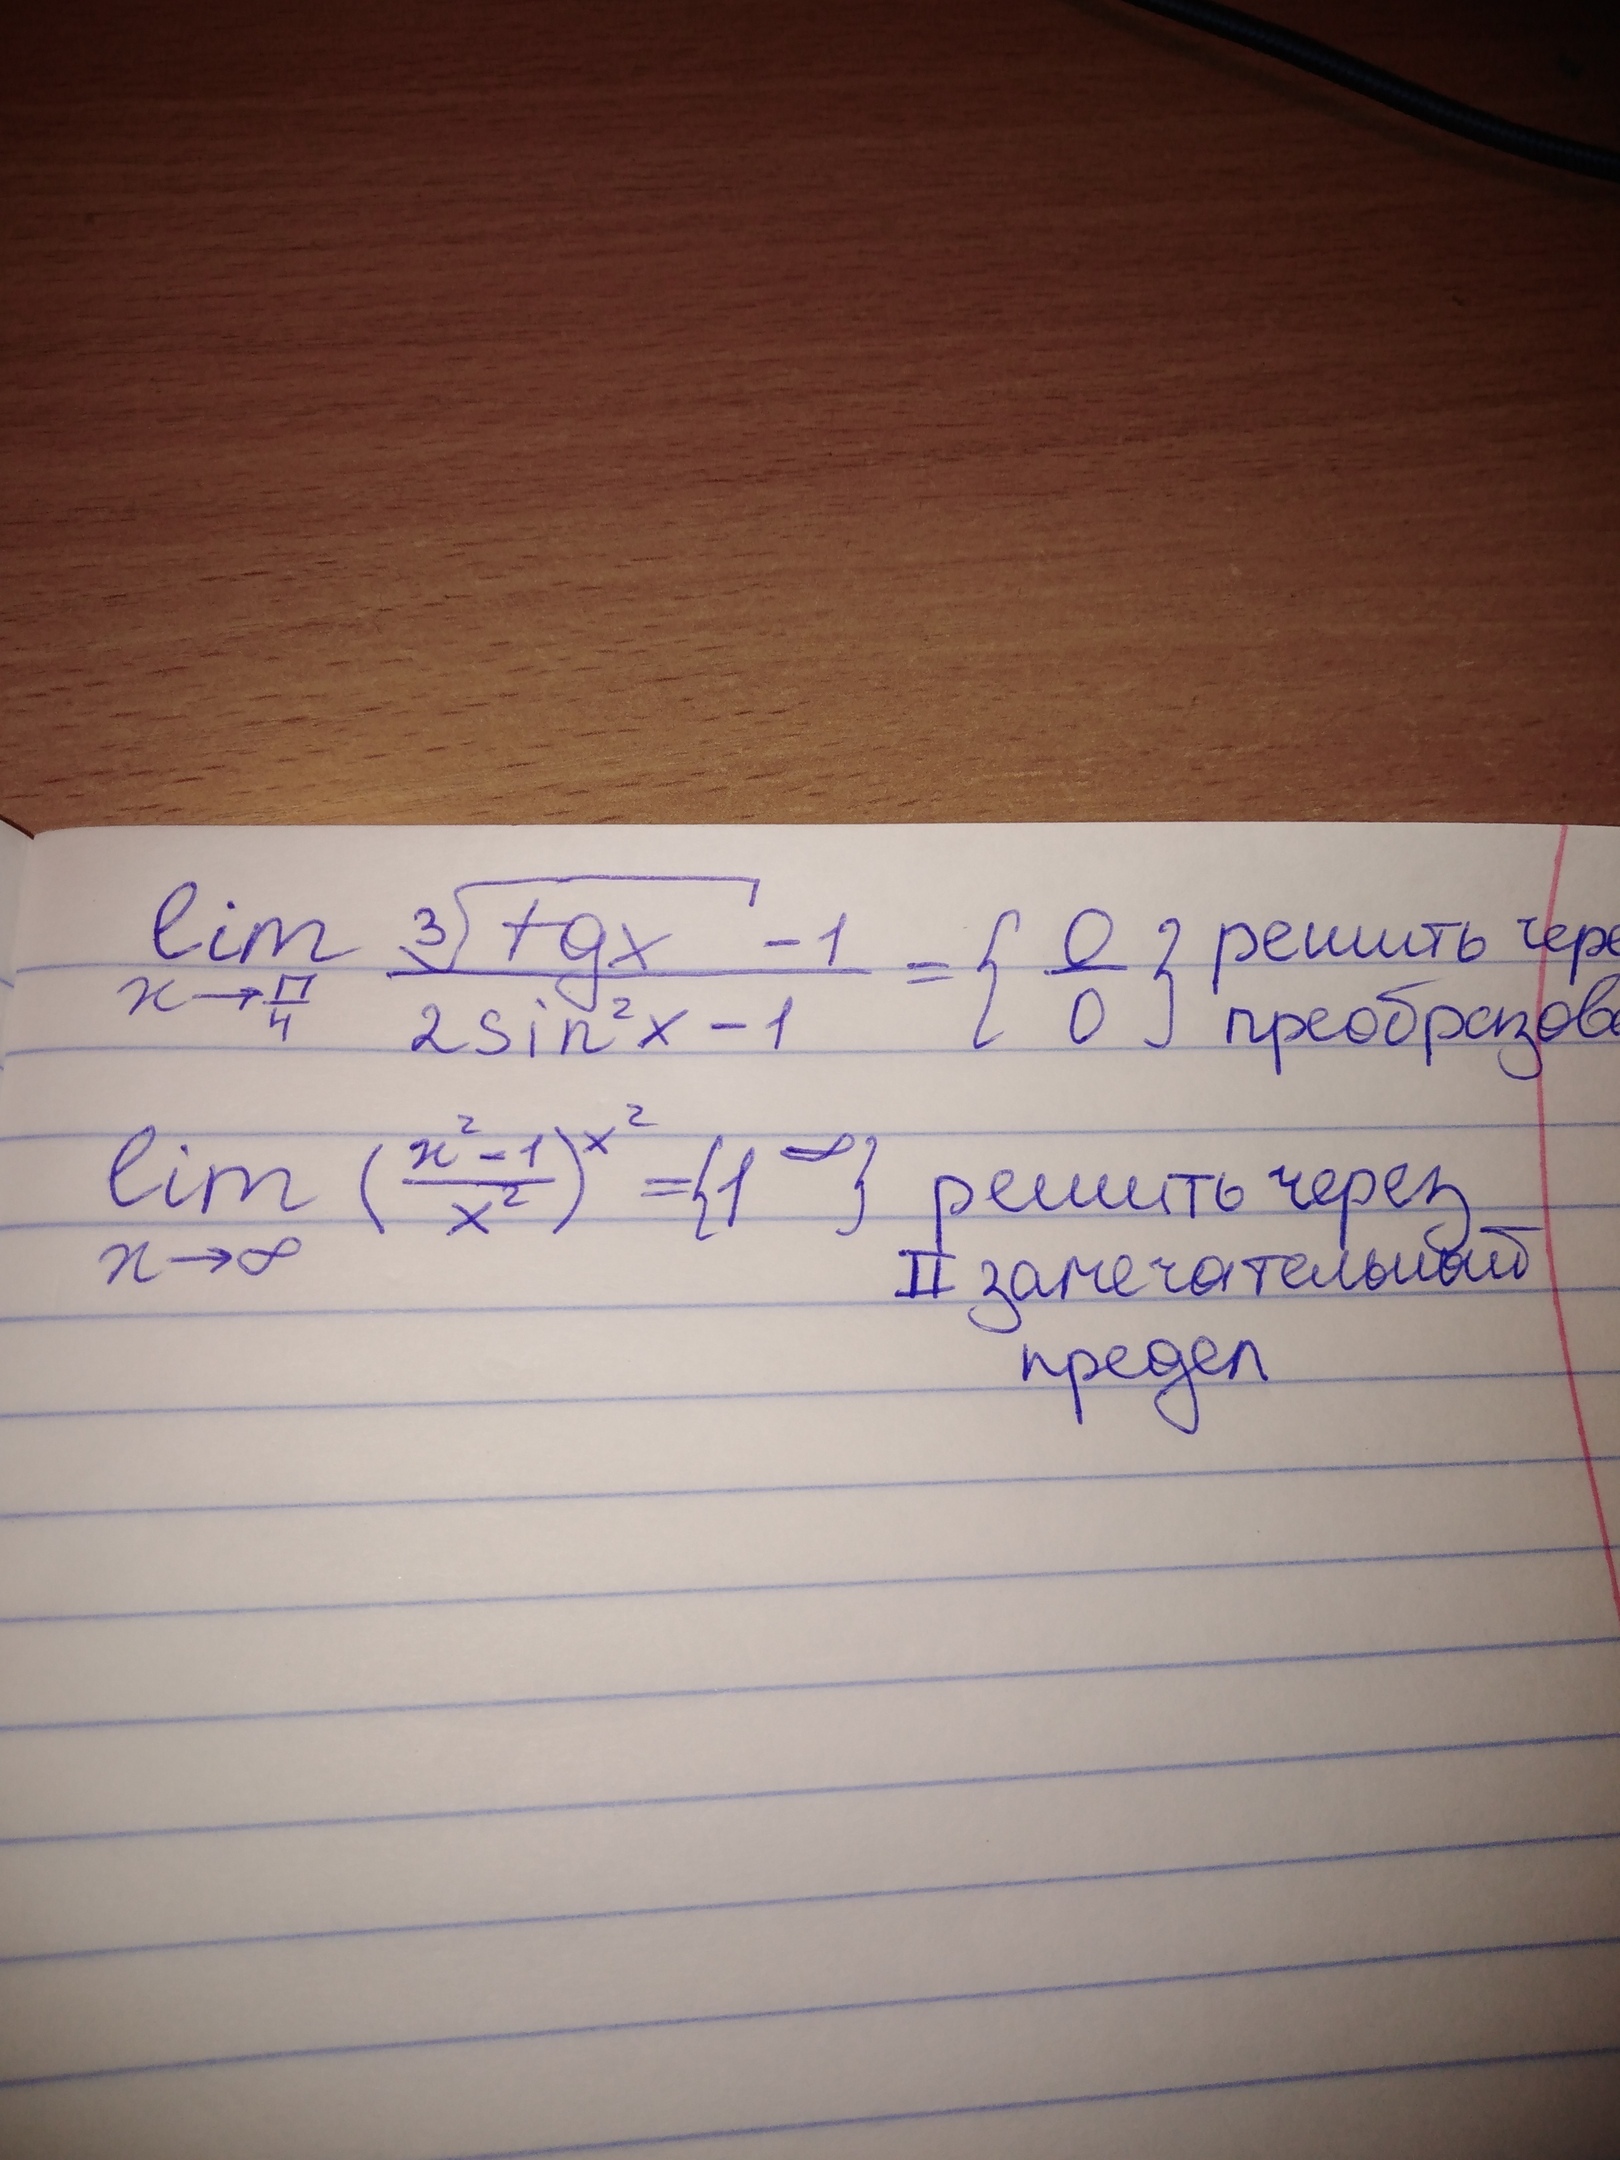 lim x→π/4 (∛(tgx) - 1)/(2sin²x - 1) = {0/0} решить
lim x→∞ ((x² - 1)/x²)^x² = {1^∞} решить через
II замечательный
предел